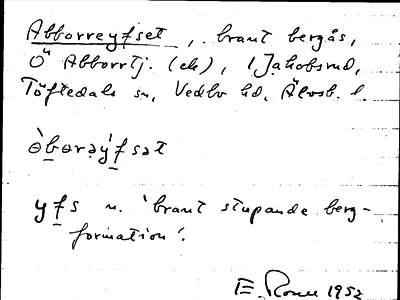 Abborreyfset, brant bergås,
Ö Abborrtj. (ek), 1 Jakobsrud,
Töftedals sn, Vedbo hd, Älvsb. l.
òbərəy̆fsət
yfs n. 'brant stupande berg-
formation'.
1952